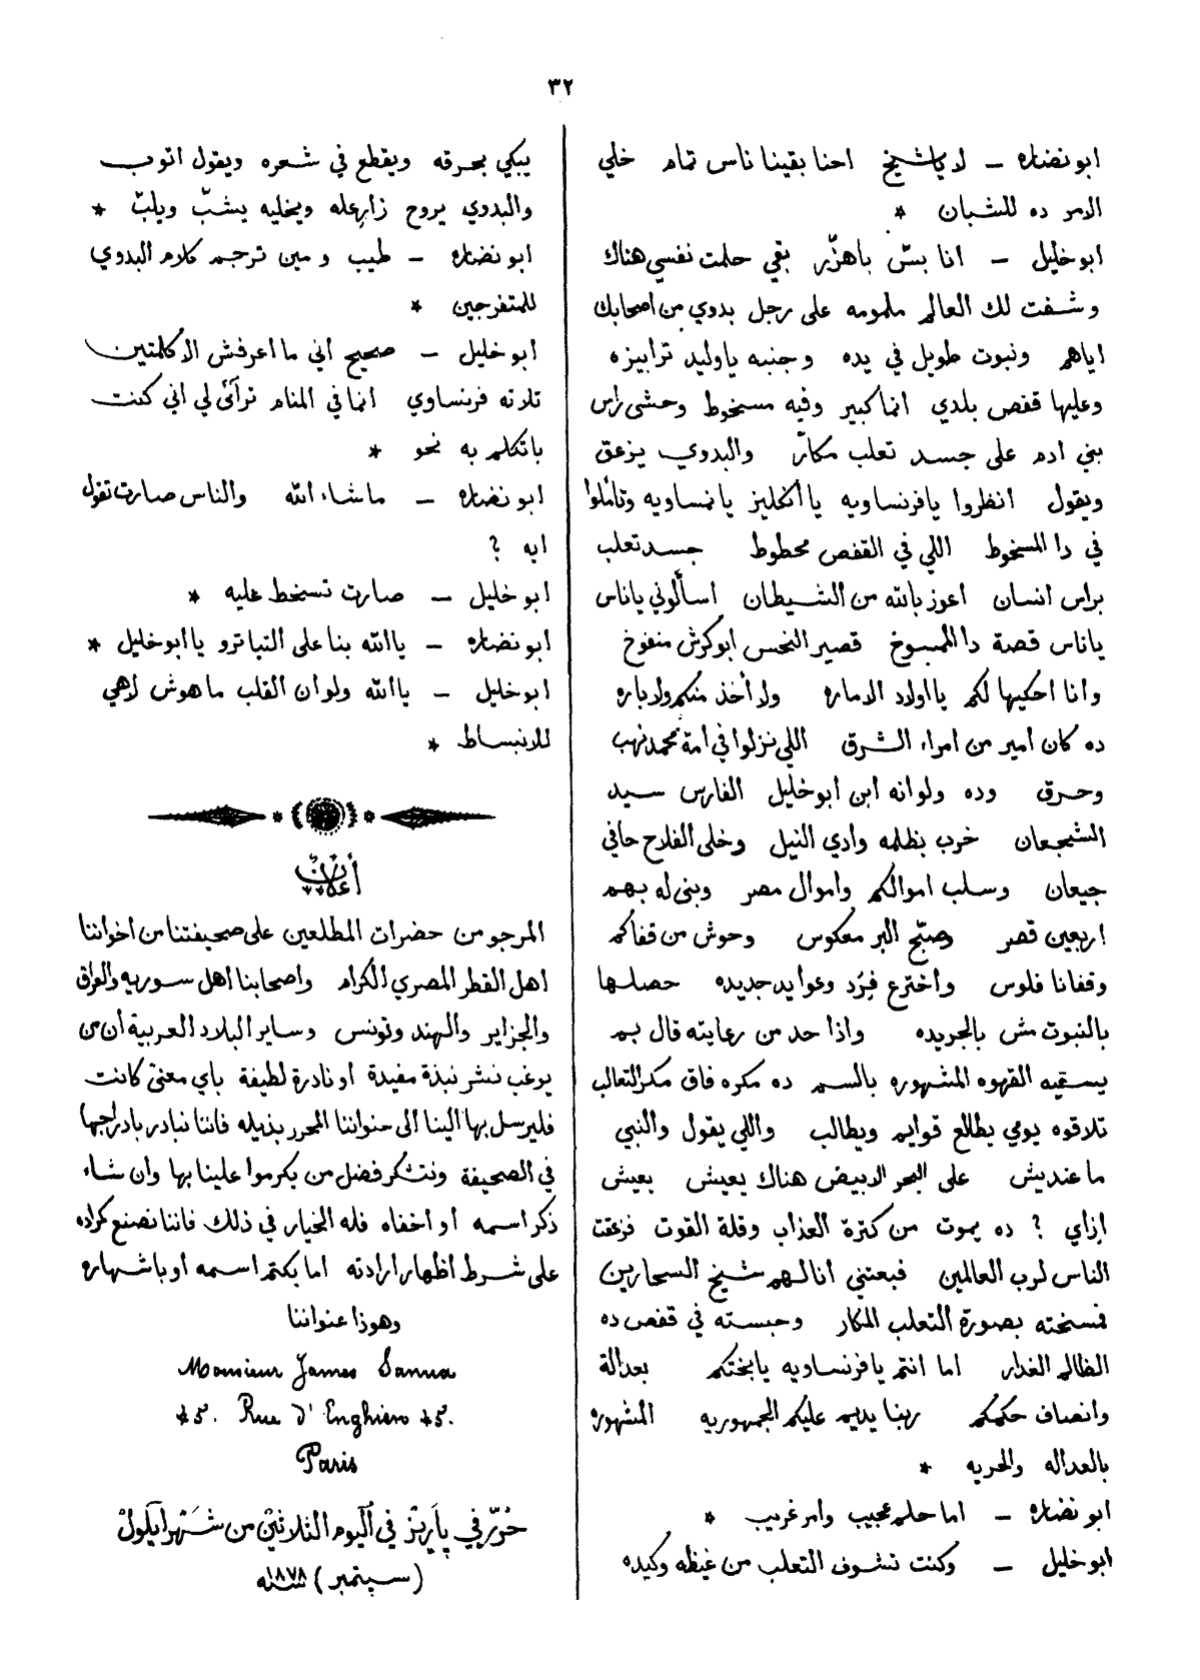 ٣٢
ابو نضاره — لا ياشيخ احنا بقينا ناس تمام خلي
الامر ده للشبان *
ابو خليل — انا بسّ باهزّر بقي حلمت نفسي هناك
وشفت لك العالم ملمومه على رجل بدوي من اصحابك
اياهم ونبوت طويل في يده وجنبه ياوليد ترابيزه
وعليها قفص بلدي انما كبير وفيه مسخوط وحشى راس
بني ادم على جسد تعلب مكارّ والبدوي يزعق
ويقول انظروا يافرنساويه يا انكليز يانمساويه وتأملوا
في دا المسخوط اللي في القفص محطوط جسد تعلب
براس انسان اعوز بالله من الشيطان اسألوني ياناس
ياناس قصة دا الممسوخ قصير النحس ابو كرش منفوخ
وانا احكيها لكم يا اولاد الاماره ولا أخذ منكم ولا باره
ده كان امير من امراء الشرق اللي نزلوا في امة محمد نهب
وحرق وده ولوانه ابن ابو خليل الفارس سيد
الشجعان خرب بظلمه وادي النيل وخلى الفلاح حافي
جيعان وسلب اموالكم واموال مصر وبنى له بهم
اربعين قصر وصبّح البر معكوس وحوش من قفاكم
وقفانا فلوس وأخترع فِرَد وعوايد جديده حصلها
بالنبوت مش بالجريده واذا حد من رعايته قال بم
يسقيه القهوه المشهوره بالسم ده مكره فاق مكر التعالب
تلاقوه يومي يطلع قوايم ويطالب واللي يقول والنبي
ما عنديش على البحر الابيض هناك يعيش يعيش
ازاي ؟ ده يموت من كترة العذاب وقلة القوت فزعقت
الناس لرب العالمين فبعتني انا لهم شيخ السحارين
فسخته بصورة التعلب المكار وحبسته في قفص ده
الظالم الغدار اما انتم يافرنساويه يابختكم بعدالة
وانصاف حكمكم ربنا يديم عليكم الجمهوريه المشهوره
بالعداله والحريه *
ابو نضاره — اما حلم عجيب وامر غريب *
ابو خليل — وكنت تشوف التعلب من غيظه وكيده
يبكي بحرقه ويقطع في شعره ويقول اتوب
والبدوي يروح زارعله ويخليه يشبّ ويلبّ *
ابو نضاره — طيب ومين ترجم كلام البدوي
للمتفرجين *
ابو خليل — صحيح أني ما اعرفش الا كلمتين
تلاته فرنساوي انما في المنام ترآئ لي اني كنت
باتكلم به نحو *
ابو نضاره — ما شاء الله والناس صارت تقول
ايه ؟
ابو خليل — صارت تسخط عليه *
ابو نضاره — يا الله بنا على التياترو يا ابو خليل *
ابو خليل — يا الله ولو ان القلب ماهوش لاهي
للانبساط *
أعلان
المرجو من حضرات المطلعين على صحيفتنا من أخواننا
اهل القطر المصري الكرام واصحابنا اهل سوريه والعراق
والجزاير والهند وتونس وساير البلاد العربية أن من
يرغب نشر نبذة مفيدة او نادرة لطيفة باي معنى كانت
فليرسل بها الينا الى عنواننا المحرر بذيله فاننا نبادر بادراجها
في الصحيفة ونتشكر فضل من يكرموا علينا بها وان شاء
ذكر اسمه او أخفاه فله الخيار في ذلك فاننا نصنع كمراده
على شرط اظهار ارادته اما بكتم اسمه او باشهاره
وهوذا عنواننا
Monsieur James Sanua
45. Rue d'Enghien 45.
Paris
حُرّر في پاريز في اليوم الثلاثين من شهر ايلول
(سپتمبر) سنة ١٨٧٨